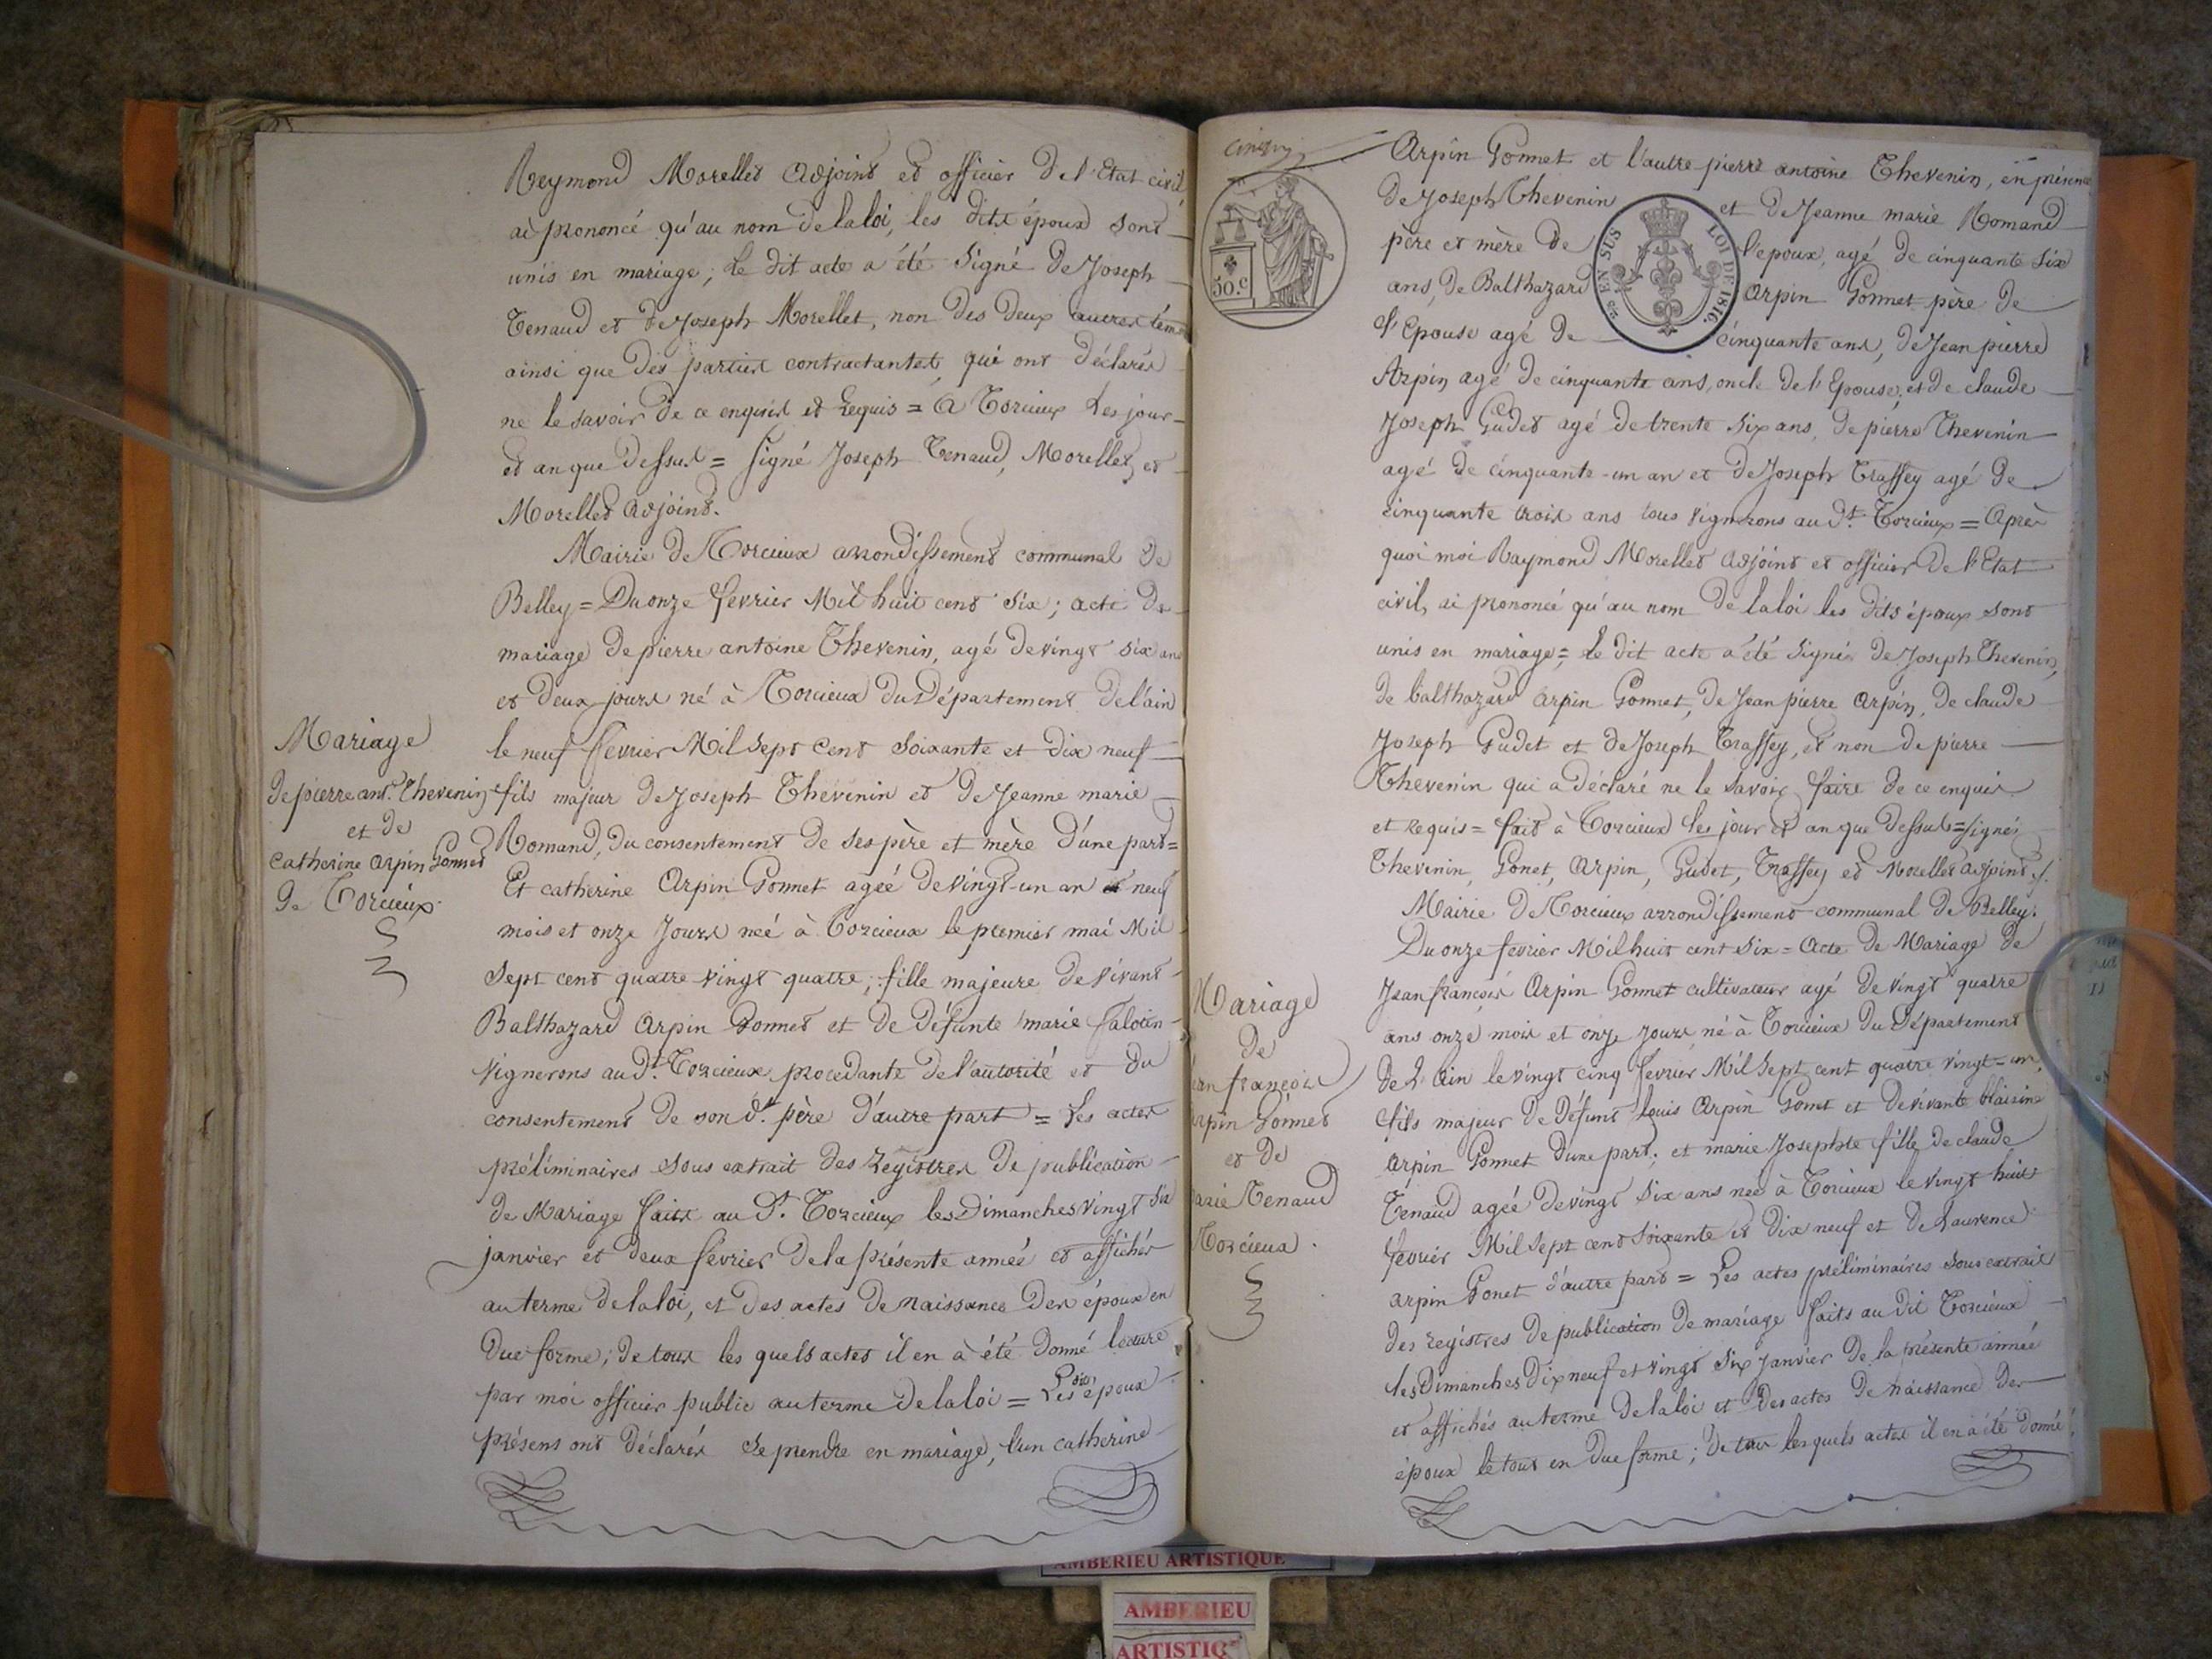 Reymond Morellet adjoint et officier de l'Etat civil
ai prononcé qu'au nom de la loi, les dits époux sont
unis en mariage; Le dit acte a été Signé de Joseph
Tenaud et de Joseph Morellet, non des deux autres tém
ainsi que des parties contractantes, qui ont déclarés
ne le savoir de ce enquis et Requis = A Torcieux Les jour
et an que dessus = signé Joseph Tenaud, Morellet, et
Morellet adjoint.
Mairie de Torcieux arrondissement communal de
Belley = Du onze fevrier Mil huit cent six; acte de
mariage de pierre antoine Thevenin, agé de vingt six ans
et deux jours né à Torcieux du Département de l'ain
le neuf fevrier Mil Sept Cent Soixante et dix neuf
fils majeur de Joseph Thévenin et de Jeanne marie
Romand, du consentement de ses père et mère d'une part =
Et catherine Arpin Gonnet agée de vingt-un an et neuf
mois et onze Jours née à Torcieux le premier mai Mil
Sept cent quatre vingt quatre; fille majeure de vivant
Balthazard Arpin Gonnet et de Défunte marie falotin
Vignerons au dt. Torcieux procedante de l'autorité et du
consentement de son dt. père d'autre part = Les actes
préliminaires Sous extrait des Registres de publication
de Mariage faits au dt. Torcieux les Dimanches vingt six
janvier et deux février de la présente année et affichés
au terme de la loi, et des actes de naissance des époux en
due forme; de tous les quels actes il en à été donné lecture
par moi officier public au terme de la loi = Les dits époux
présens ont déclarés se prendre en mariage, l'un catherine
Mariage
de pierre ant. Thevenin
et de
catherine Arpin Gonnet
de Torcieux.
cinquy
50.c
EN SUS
LOI DE 1816.
Arpin Gonnet et l'autre pierre antoine Thevenin, en présence
de Joseph Thevenin et de Jeanne marie Romand
père et mère de l'epoux, agé de cinquante six
ans, de Balthazard Arpin Gonnet père de
l'Epouse agé de cinquante ans, de Jean pierre
Arpin agé de cinquante ans, oncle de l'Epouse, et de claude
Joseph Gudet agé de trente six ans, de pierre Thevenin
agé de cinquante-un an et de Joseph Traffey agé de
cinquante trois ans tous vignerons au dt. Torcieux = Après
quoi moi Raymond Morellet adjoint et officier de l'Etat
civil, ai prononcé qu'au nom de la loi les dits époux sont
unis en mariage = le dit acte a été signé de Joseph Thevenin,
de balthazard Arpin Gonnet, de Jean pierre Arpin, de claude
Joseph Gudet et de Joseph Traffey, et non de pierre
Thevenin qui a déclaré ne le savoir faire de ce enquis
et requis = fait à Torcieux les jour et an que dessus = signés
Thevenin, Gonet, Arpin, Gudet, Traffey et Morellet adjoint /.
Mairie de Torcieux arrondissement communal de Belley.
Du onze fevrier Mil huit cent six = Acte de Mariage de
Jean françois Arpin Gonnet cultivateur agé de vingt quatre
ans onze mois et onze Jours, né à Torcieux du Département
de L'Ain le vingt cinq fevrier Mil Sept cent quatre vingt = un,
fils majeur de Défunt louis Arpin Gonet et de vivante blaisine
Arpin Gonnet d'une part; et marie Josephte fille de claude
Tenaud agée de vingt six ans née à Torcieux le vingt huit
fevrier Mil Sept cent soixante et dix neuf et de Laurence
Arpin Gonet d'autre part = Les actes préliminaires Sous extrait
des registres de publication de mariage faits au dit Torcieux
les Dimanches dix neuf et vingt six Janvier de la présente année
et affichés au terme de la loi et des actes de naissance des
époux le tout en due forme; de tous lesquels actes il en a été donné
Mariage
de
françois
Arpin Gonnet
et de
arie Tenaud
Torcieux.
AMBERIEU ARTISTIQUE
AMBERIEU
ARTISTIQ